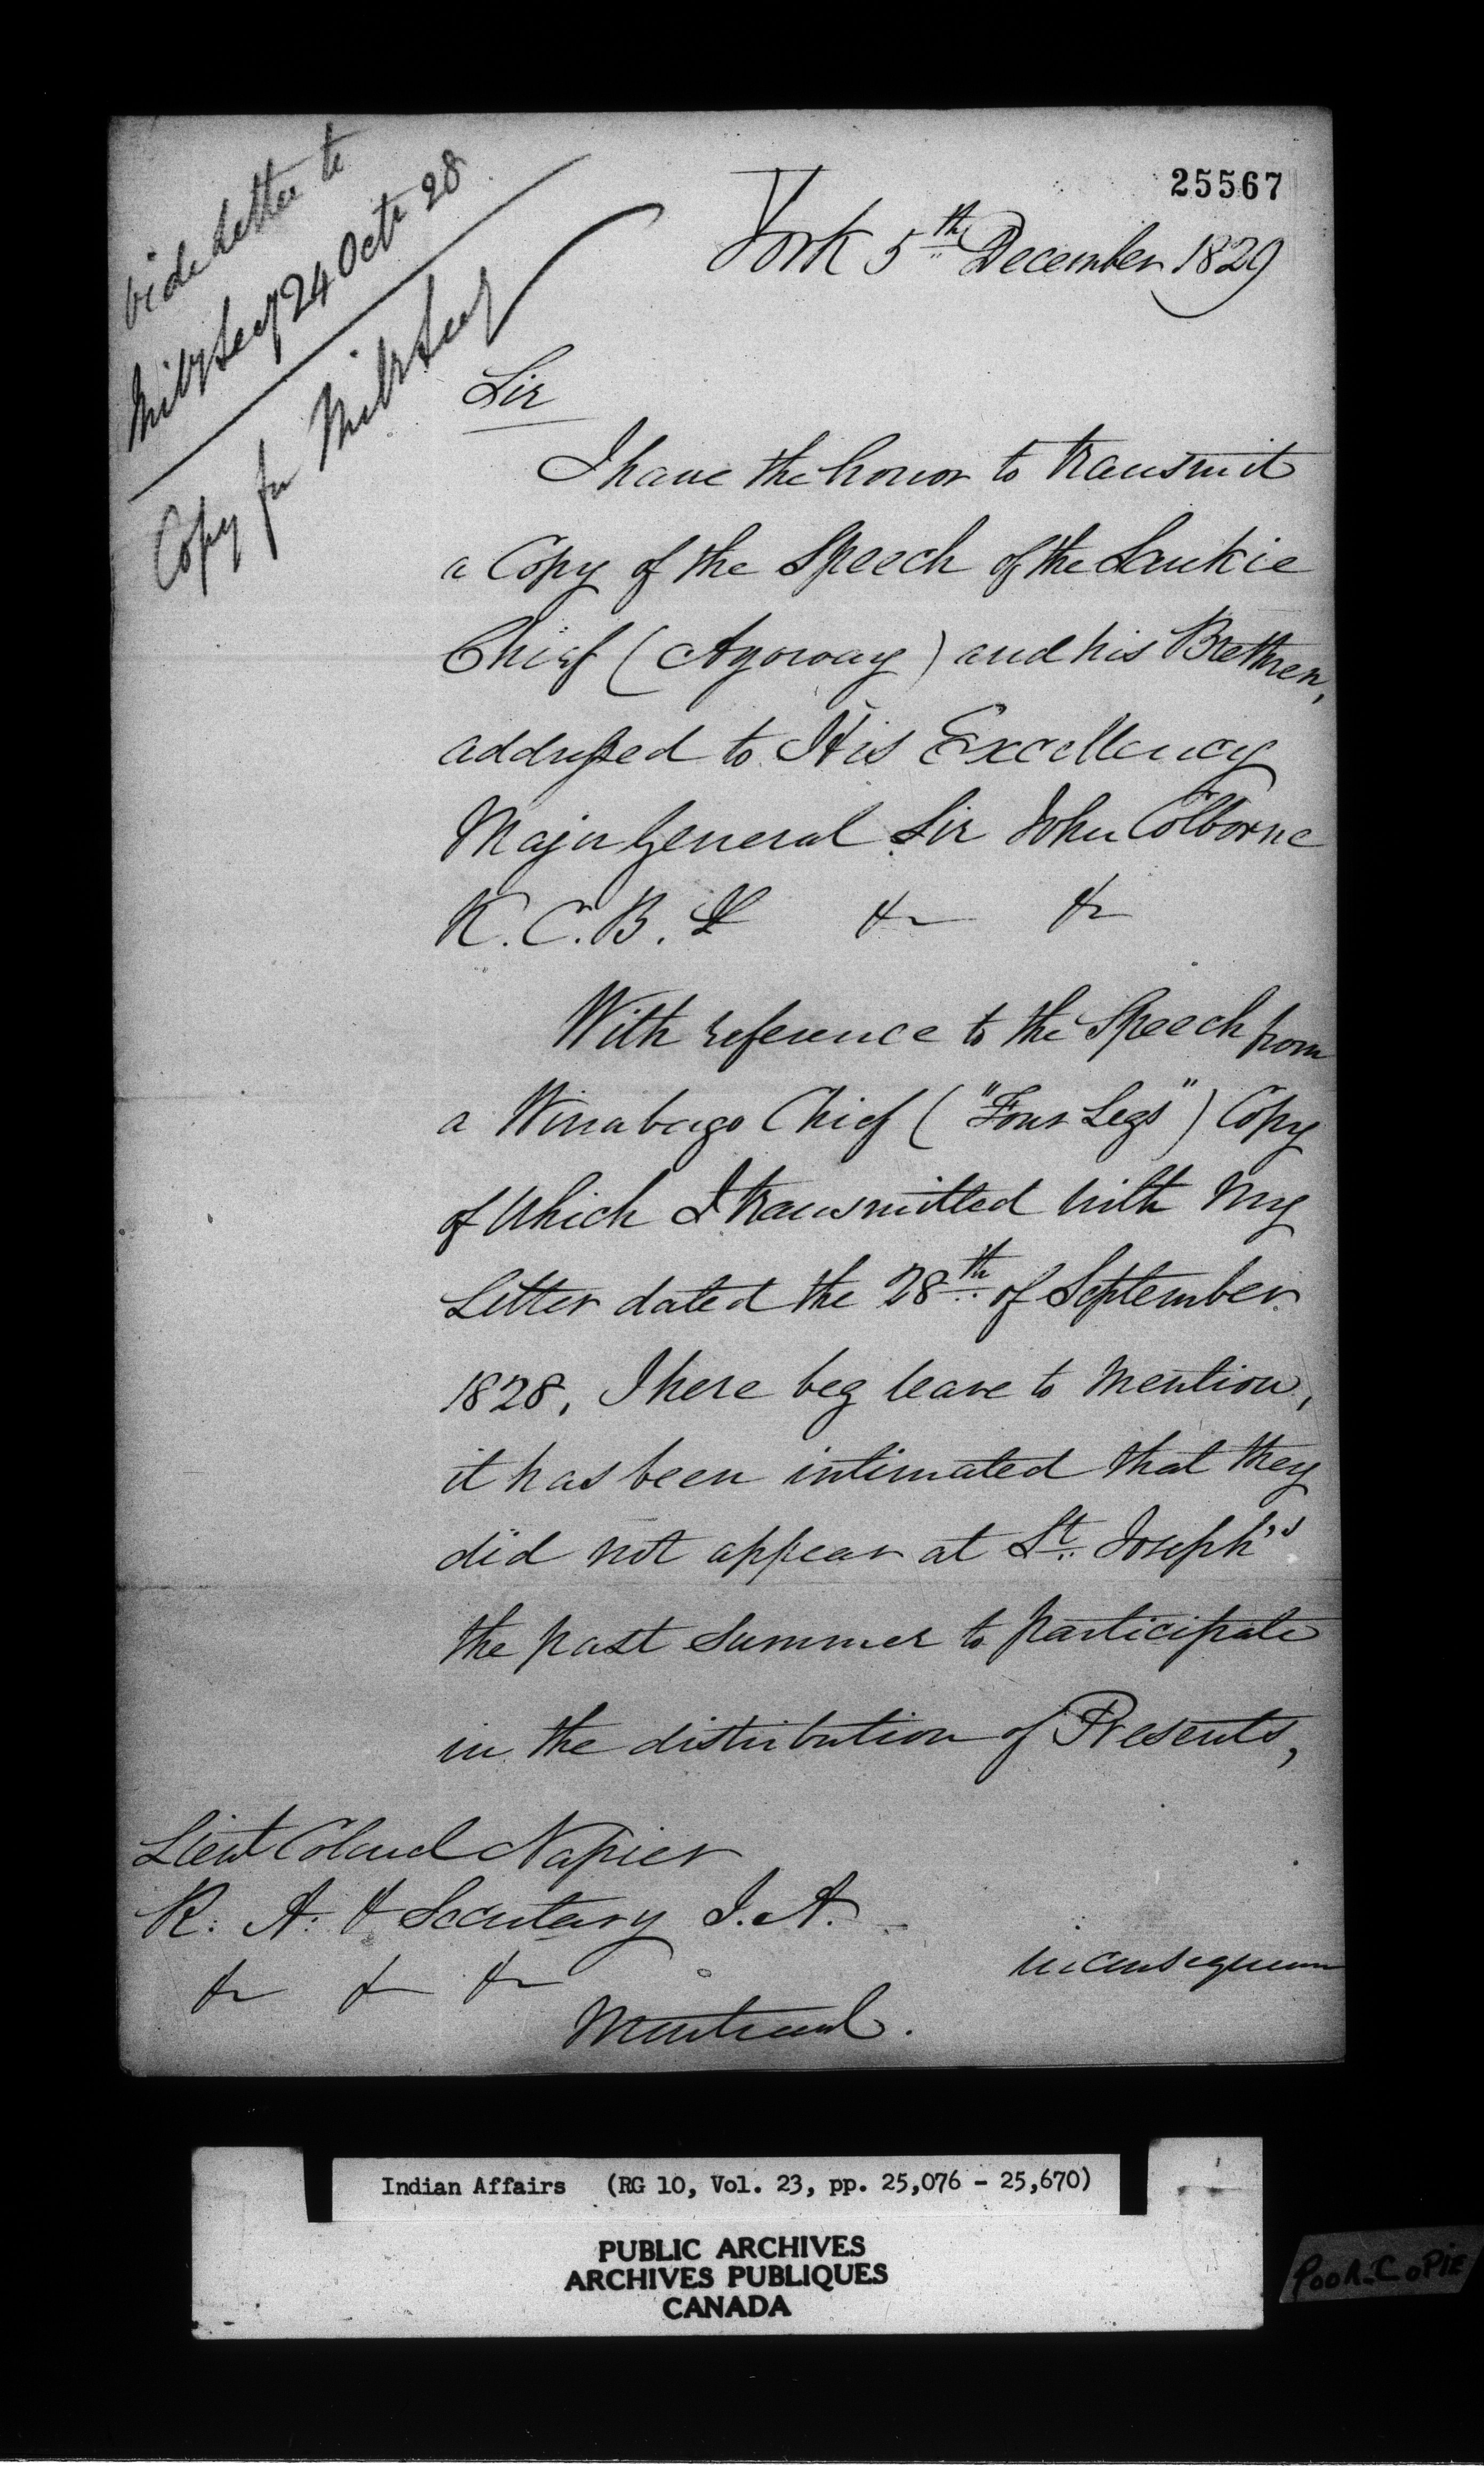 25567
vide Letter to
Mily Secy 24 Octr 28
Copy for Mily Secy
York 5th December 1829
Sir
I have the honor to transmit
a Copy of the Speech of the Saukie
Chief (Ayoway) and his Brethren,
addressed to His Excellency
Major General Sir John Colborne
K. C. B. & &c &c
With reference to the Speech from
a Winabago Chief ("Four Legs") Copy
of Which I transmitted with My
Letter dated the 28th of September
1828, I here beg leave to Mention,
it has been intimated that they
did not appear at St. Joseph's
the past Summer to participate
in the distribution of Presents,
Lieut Colonel Napier
R. A. & Secretary I. A.
&c & &c
Montreal.
in consequence
Indian Affairs (RG 10, Vol. 23, pp. 25,076 - 25,670)
PUBLIC ARCHIVES
ARCHIVES PUBLIQUES
CANADA
POOR COPIE